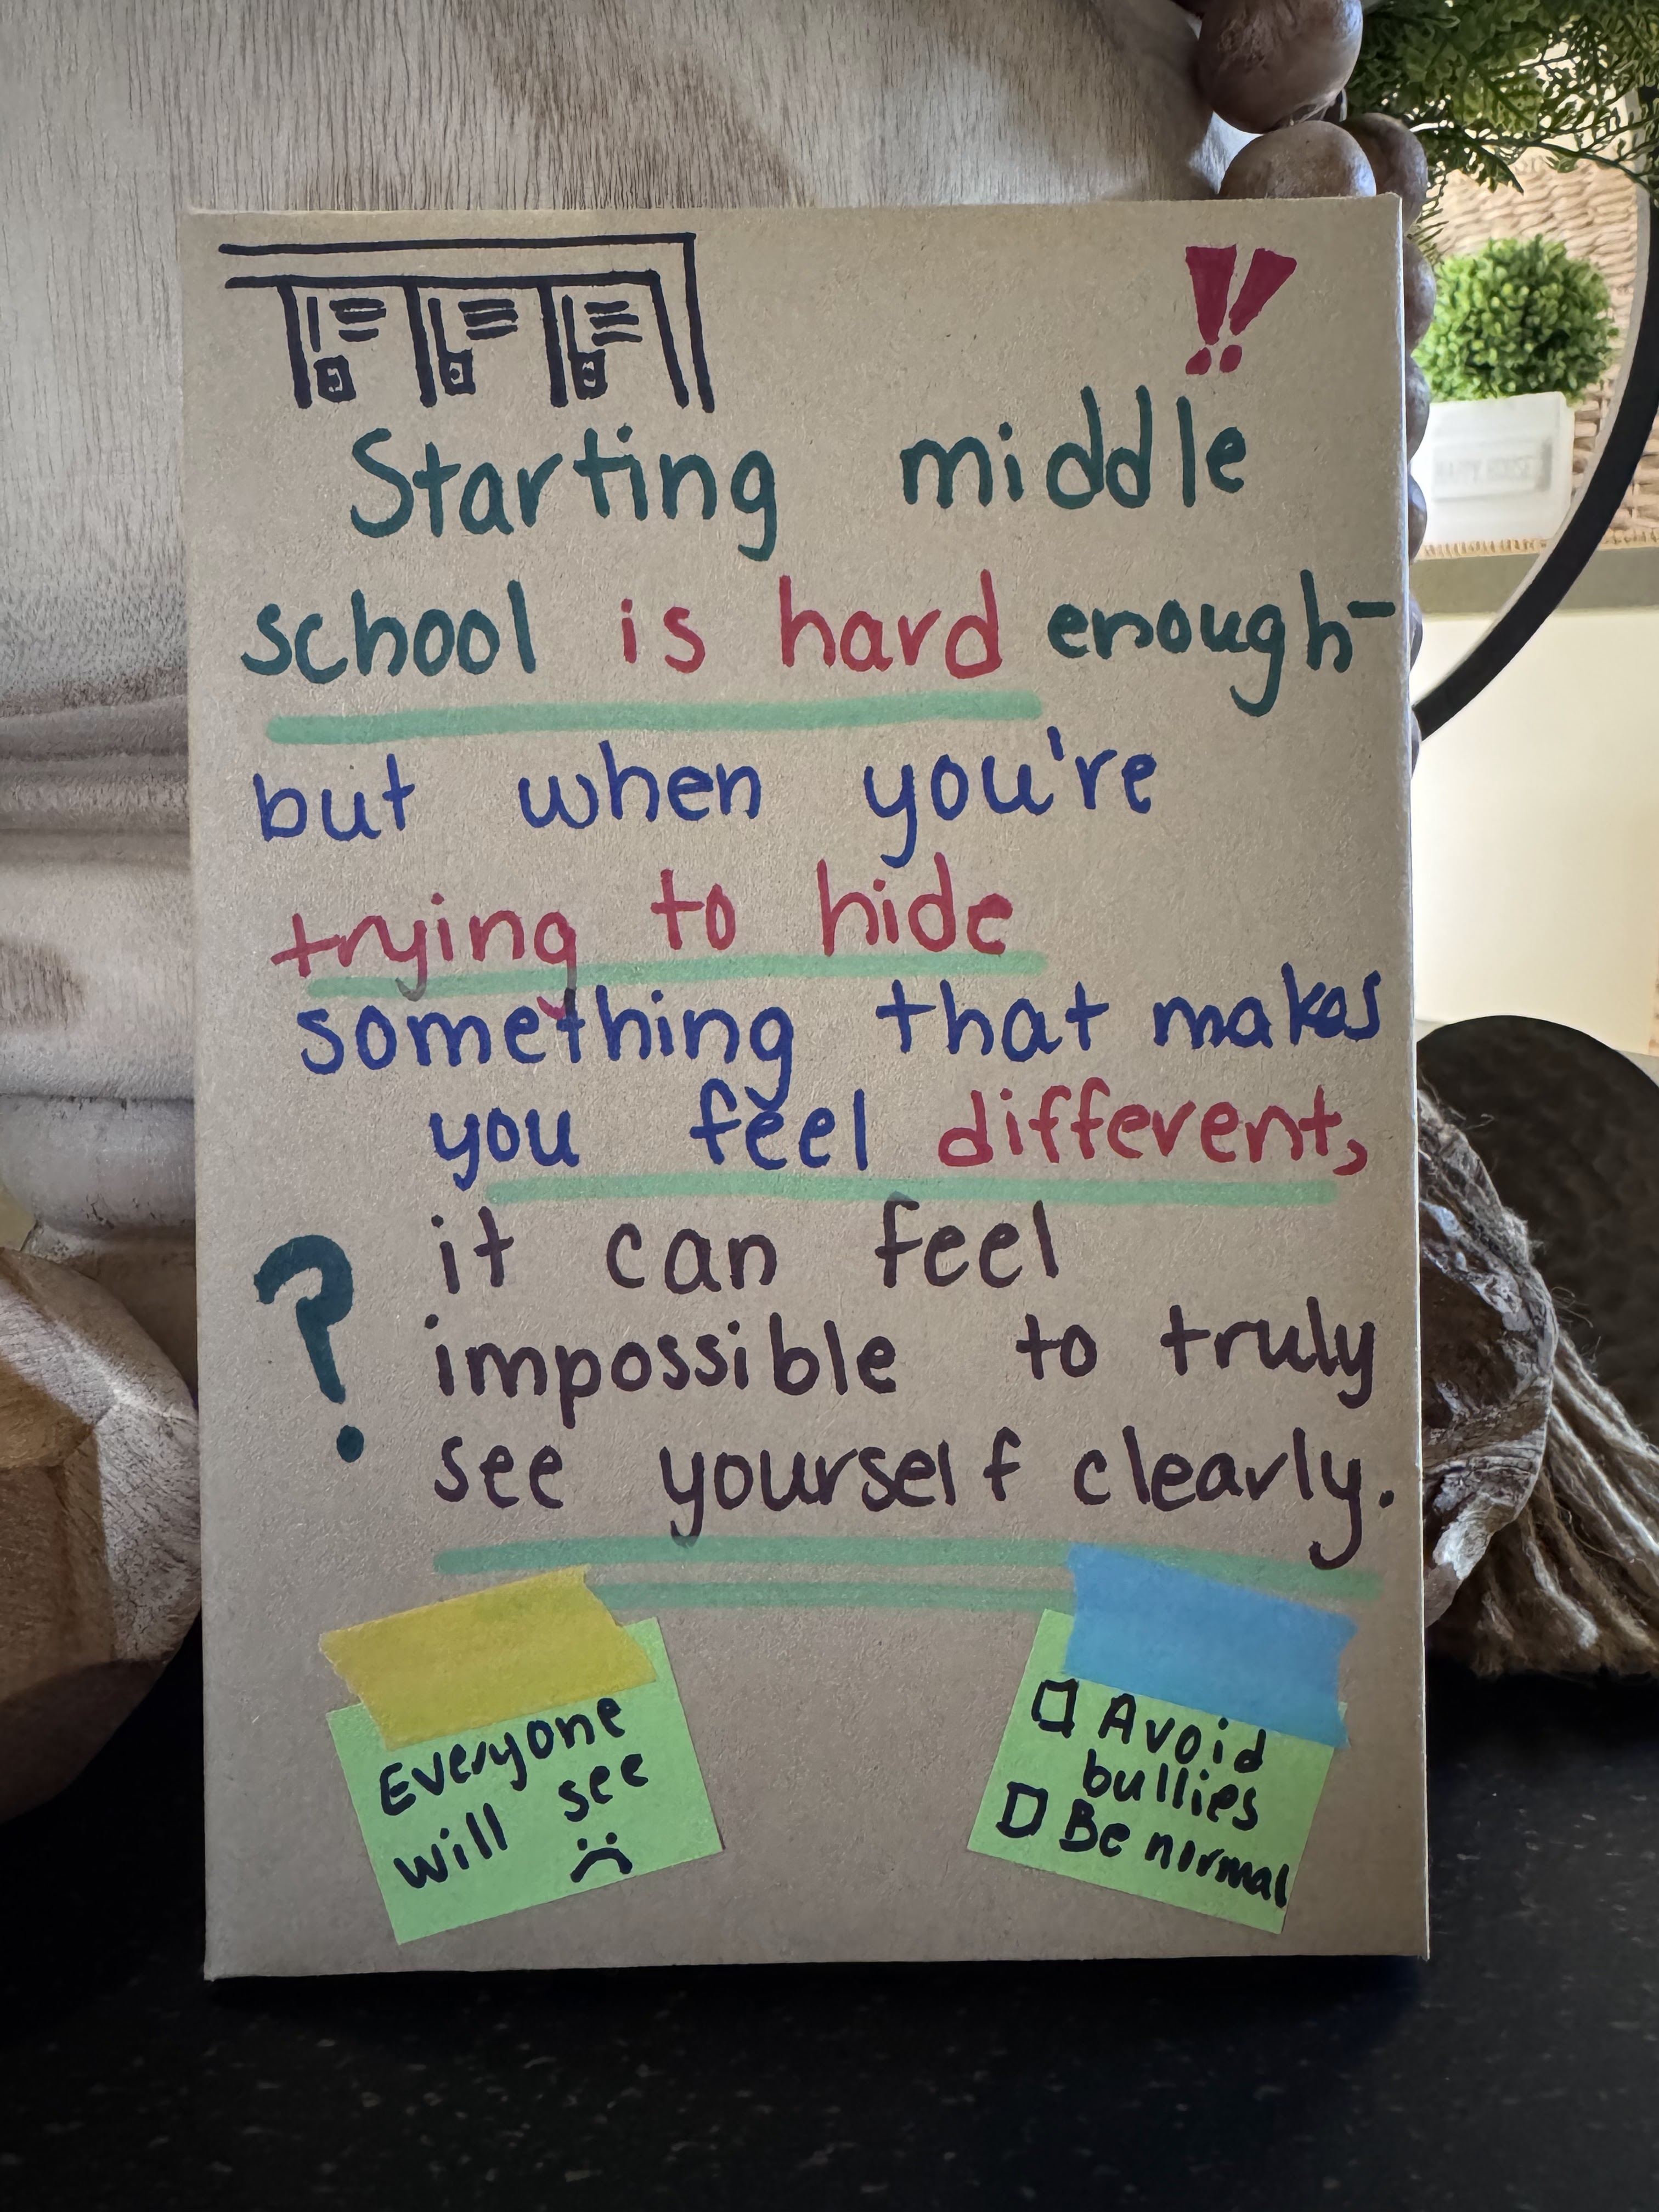 !!
Starting middle
school is hard enough-
but when you're
trying to hide
something that makes
you feel different,
it can feel
impossible to truly
see yourself clearly.
?
Everyone
will see
☐ Avoid
bullies
☐ Be normal